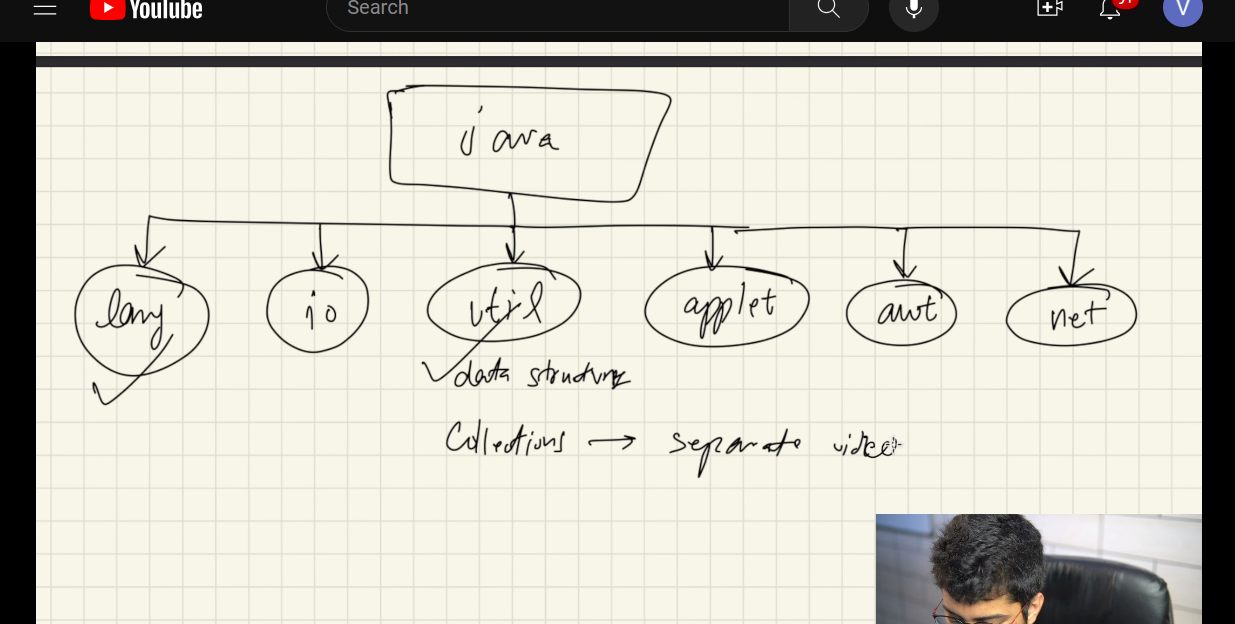 YouTube
Search
V
java
lang io util applet awt net
data structure
Collections → separate video